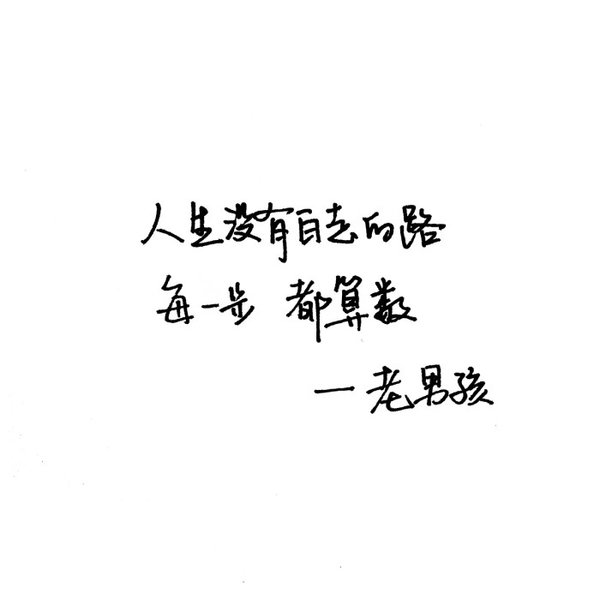 人生没有白走的路
每一步 都算数
一老男孩